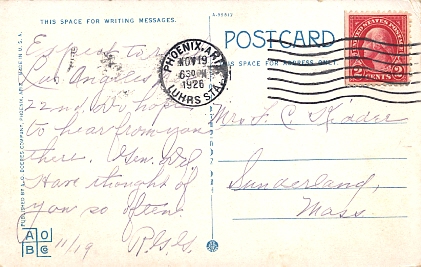 THIS SPACE FOR WRITING MESSAGES.
A-95817
POSTCARD
THIS SPACE FOR ADDRESS ONLY
PHOENIX, ARIZ.
NOV 19
6 30 PM
1926
LUHRS STA.
UNITED STATES POSTAGE
2 CENTS 2
Expect to
Los Angeles
22nd we hope
to hear from you
there. Gen. Del
Have thought of
you so often.
11/19 R.G.G.
Mrs F. C. Kidder
Sunderland,
Mass.
MADE IN U.S.A.
A O
B C